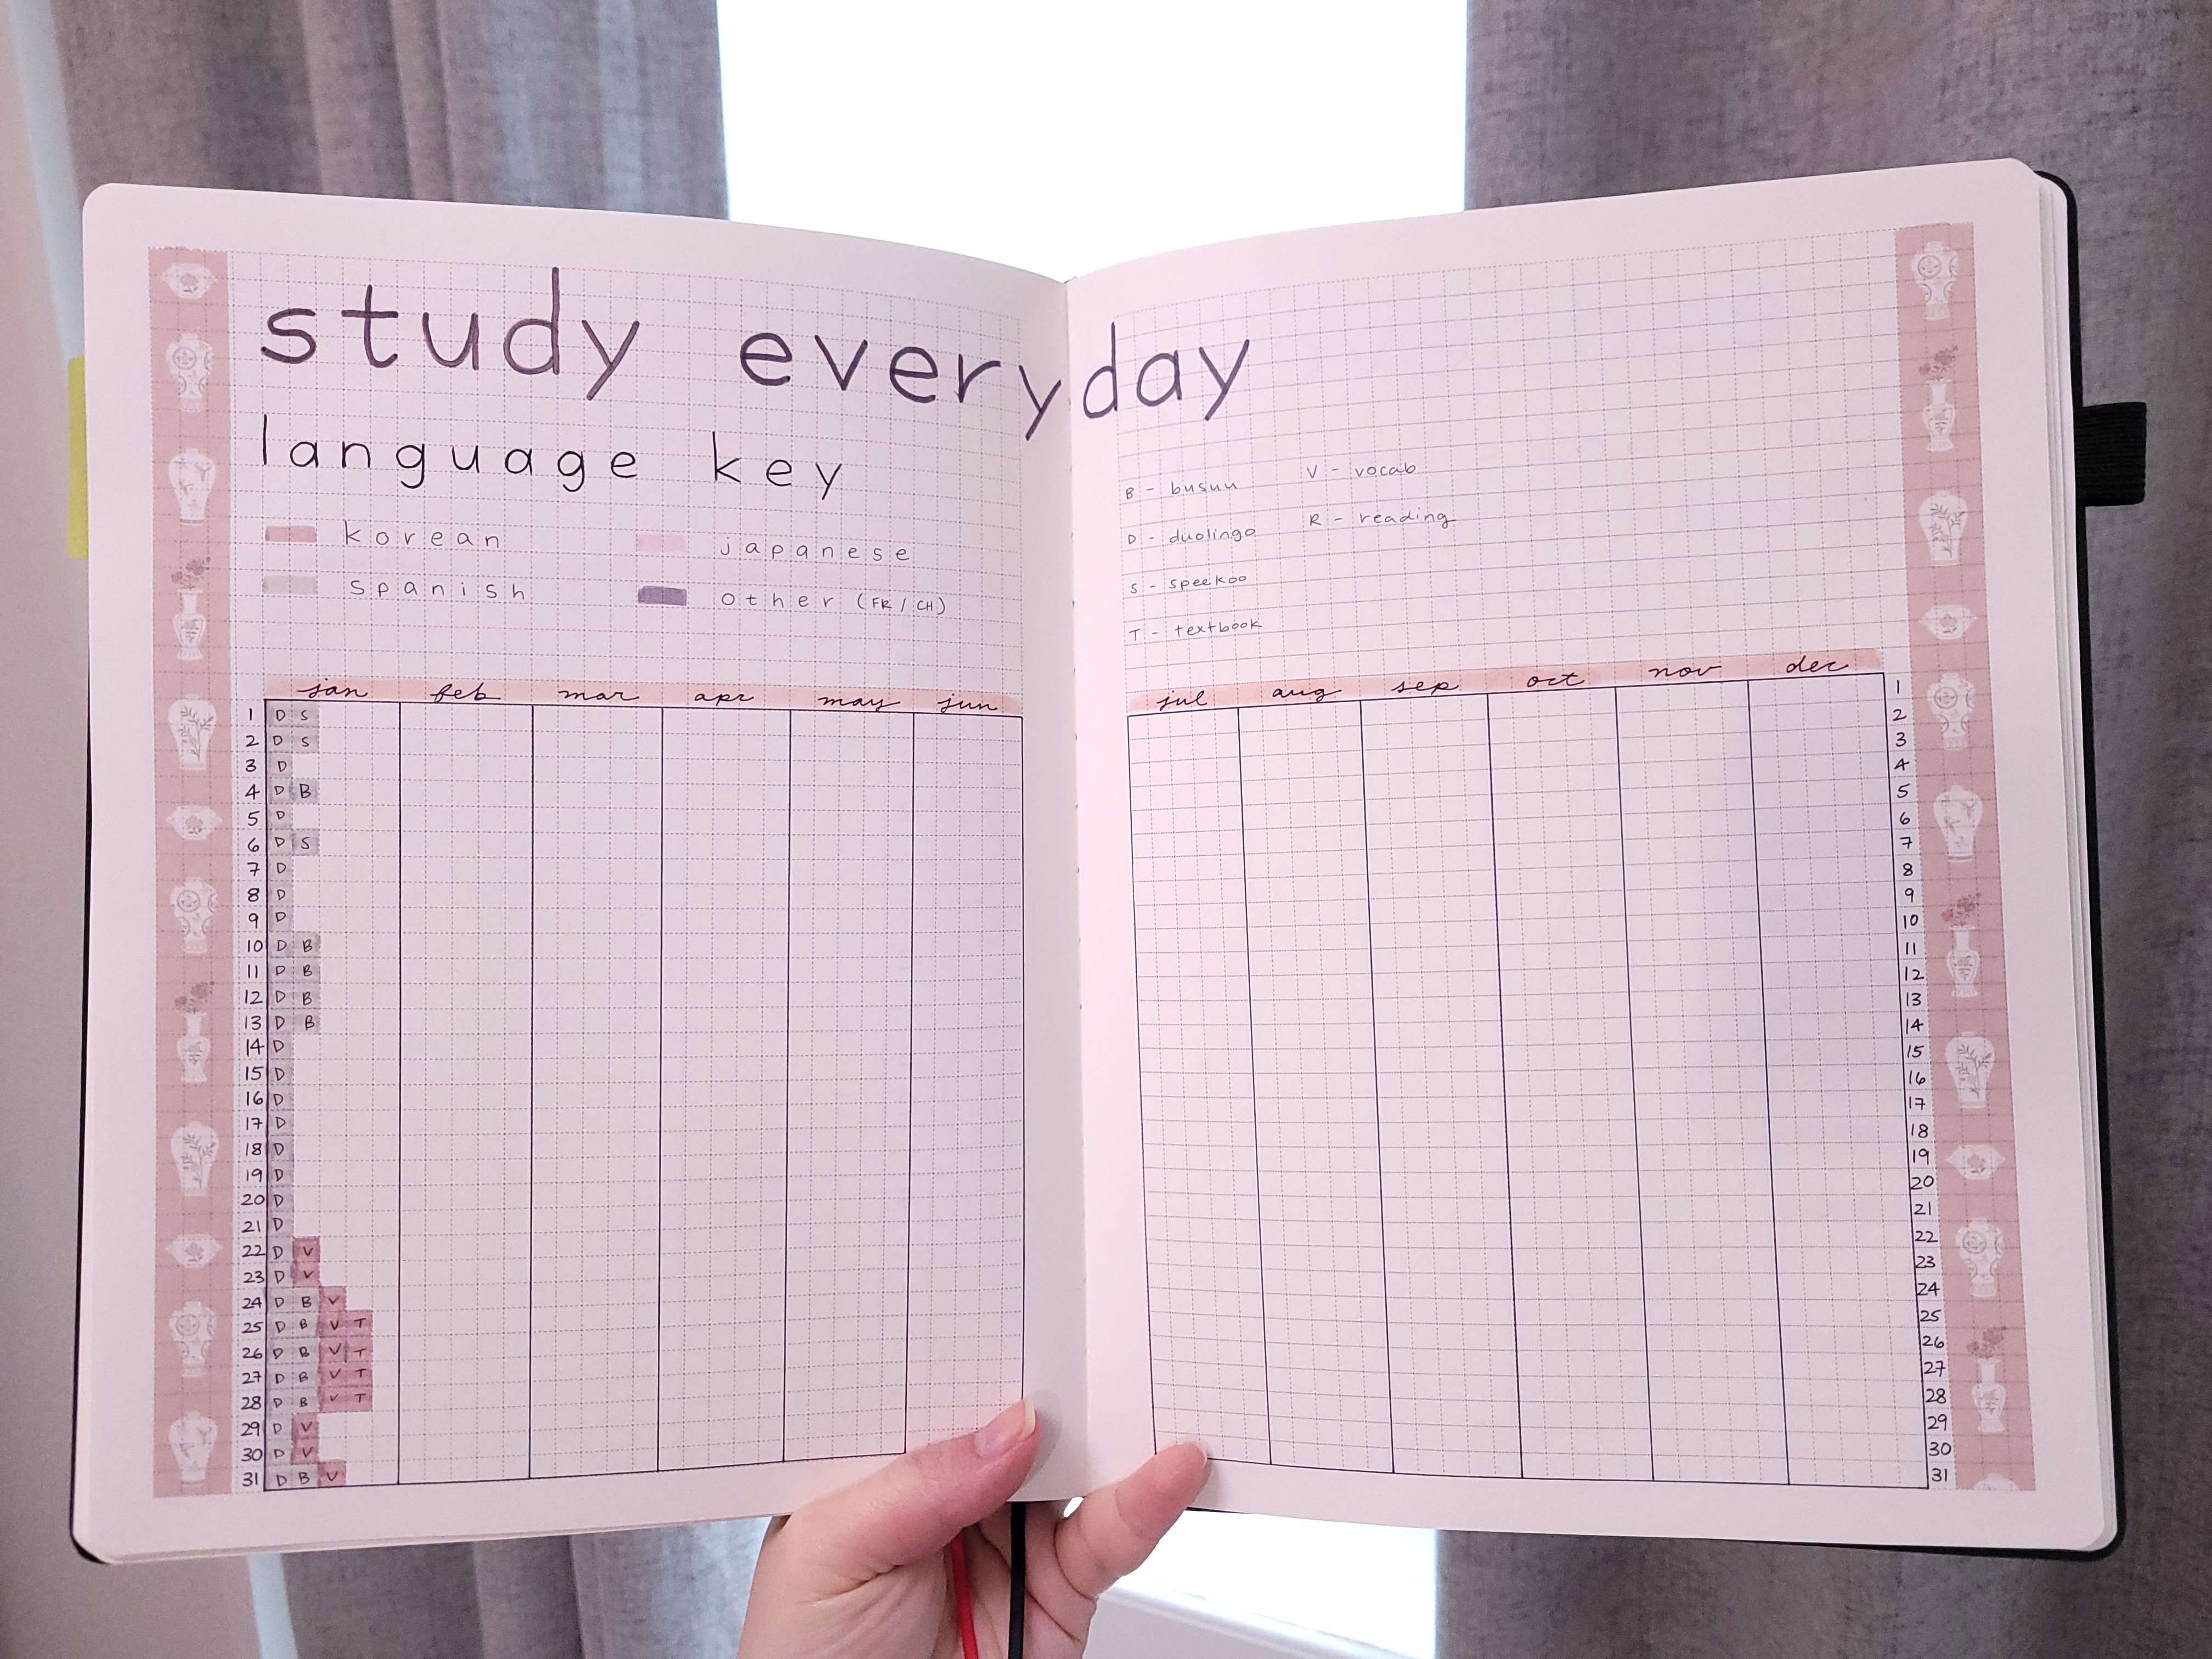 study everyday
language key
korean japanese
spanish other (FR/CH)
B - busuu V - vocab
D - duolingo R - reading
S - speekoo
T - textbook
jan feb mar apr may jun
1 D S
2 D S
3 D
4 D B
5 D
6 D S
7 D
8 D
9 D
10 D B
11 D B
12 D B
13 D B
14 D
15 D
16 D
17 D
18 D
19 D
20 D
21 D
22 D V
23 D V
24 D B V
25 D B V T
26 D B V T
27 D B V T
28 D B V T
29 D V
30 D V
31 D B V
jul aug sep oct nov dec
1
2
3
4
5
6
7
8
9
10
11
12
13
14
15
16
17
18
19
20
21
22
23
24
25
26
27
28
29
30
31